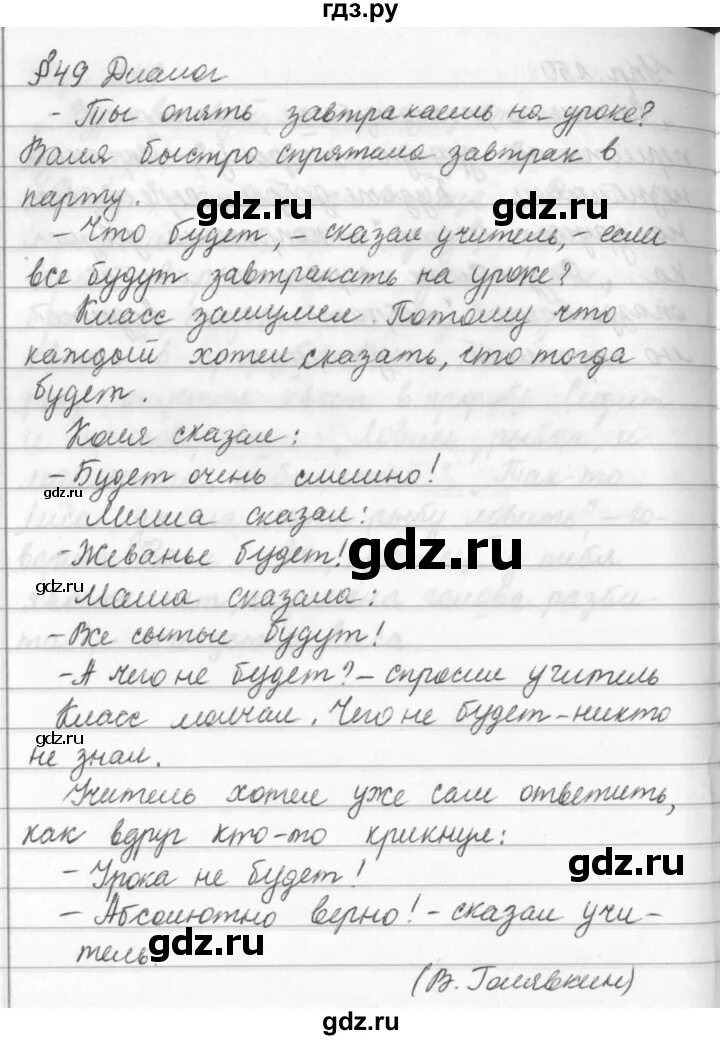 гдз.ру
§49 Диалог
- Ты опять завтракаешь на уроке?
Валя быстро спрятала завтрак в
парту.
gdz.ru gdz.ru
- Что будет, - сказал учитель, - если
все будут завтракать на уроке?
Класс зашумел. Потому что
каждый хотел сказать, что тогда
будет.
Коля сказал:
- Будет очень смешно!
gdz.ru
Миша сказал:
- Жеванье будет!
gdz.ru
gdz.ru
Маша сказала:
- Все сытые будут!
- А чего не будет? - спросил учитель
Класс молчал. Чего не будет - никто
gdz.ru
не знал.
Учитель хотел уже сам ответить,
как вдруг кто-то крикнул:
- Урока не будет!
gdz.ru
- Абсолютно верно! - сказал учи-
тель.
gdz.ru
(В. Голявкин)
gdz.ru